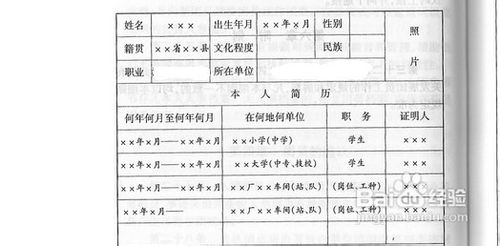 姓名 ××× 出生年月 ××年×月 性别 照
籍贯 ××省××县 文化程度 民族
片
职业 所在单位
本人简历
何年何月至何年何月 在何地何单位 职务 证明人
××年×月——××年×月 ××小学(中学) 学生 ×××
××年×月——××年×月 ××大学(中专、技校) 学生 ×××
××年×月——××年×月 ××厂××车间(站、队) (岗位、工种) ××
××年×月—— ××厂××车间(站、队) (岗位、工种) ×××
Baidu经验
jingyan.baidu.com